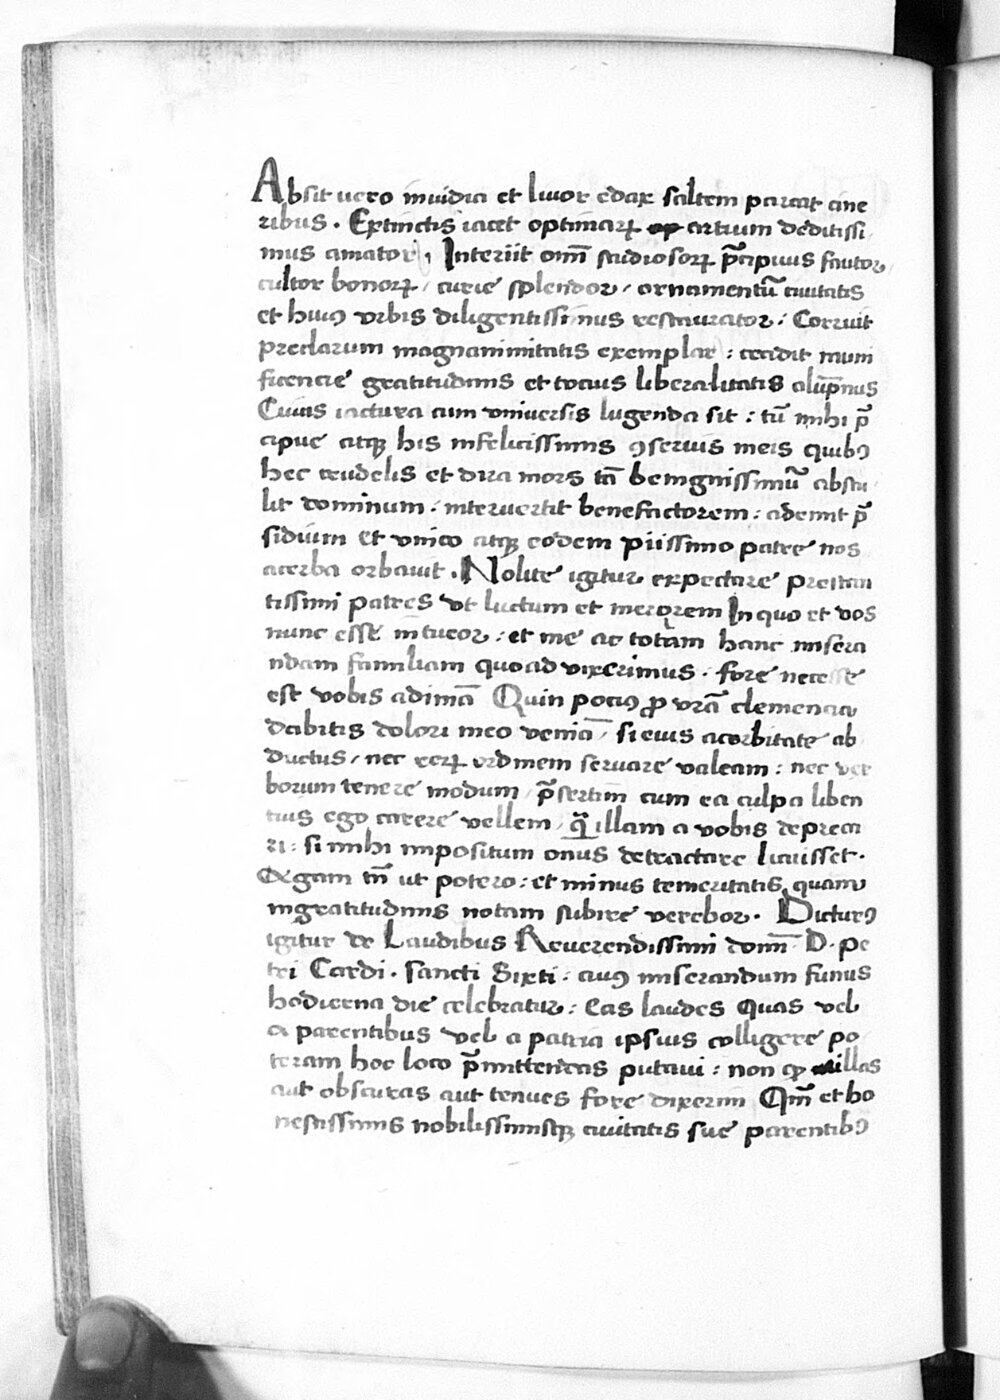 Absit vero inuidia et liuor edax saltem parcat cine
ribus. Extinctus iacet optimaꝝ artium deditissi
mus amator, Interiit om̄ studiosoꝝ p̄cipuus fautor,
cultor bonoꝝ, curie splendor, ornamentū ciuitatis
et huiꝰ vrbis diligentissimus restaurator: Corruit
preclarum magnanimitatis exemplar: cecidit muni
ficencie gratitudinis et tocius liberalitatis alūpnus
Cuius iactura cum vniuersis lugenda sit: tū mihi p̄
cipue atqꝫ his infelicissimis ꝯseruis meis quibꝰ
hec crudelis et dira mors tā benignissimū abstu
lit dominum: interuertit benefactorem: ademit p̄
sidium et vnico atqꝫ eodem piissimo patre nos
acerba orbauit. Nolite igitur expectare prestan
tissimi patres vt luctum et merorem In quo et vos
nunc esse intueor: et me ac totam hanc misera
ndam familiam quoad vixerimus: fore necesse
est vobis adimā Quin pociꝰ ꝓ vrā clemencia
dabitis dolori meo veniā, si eius acerbitate ab
ductus, nec reꝝ ordinem seruare valeam: nec ver
borum tenere modum, p̄sertim cum ea culpa liben
tius ego carere vellem, q̄ illam a vobis depreca
ri: si mihi impositum onus detractare licuisset.
Agam tn̄ ut potero: et minus temeritatis quam
ingratitudinis notam subire verebor. Dicturꝰ
igitur de Laudibus Reuerendissimi domī D. Pe
tri Cardi. sancti Sixti: cuiꝰ miserandum funus
hodierna die celebratur: Eas laudes Quas vel
a parentibus vel a patria ipsius colligere po
teram hoc loco p̄mittendas putaui: non ꝙ illas
aut obscuras aut tenues fore dixerim Qm̄ et ho
nestissimis nobilissimisqꝫ ciuitatis sue parentibꝰ